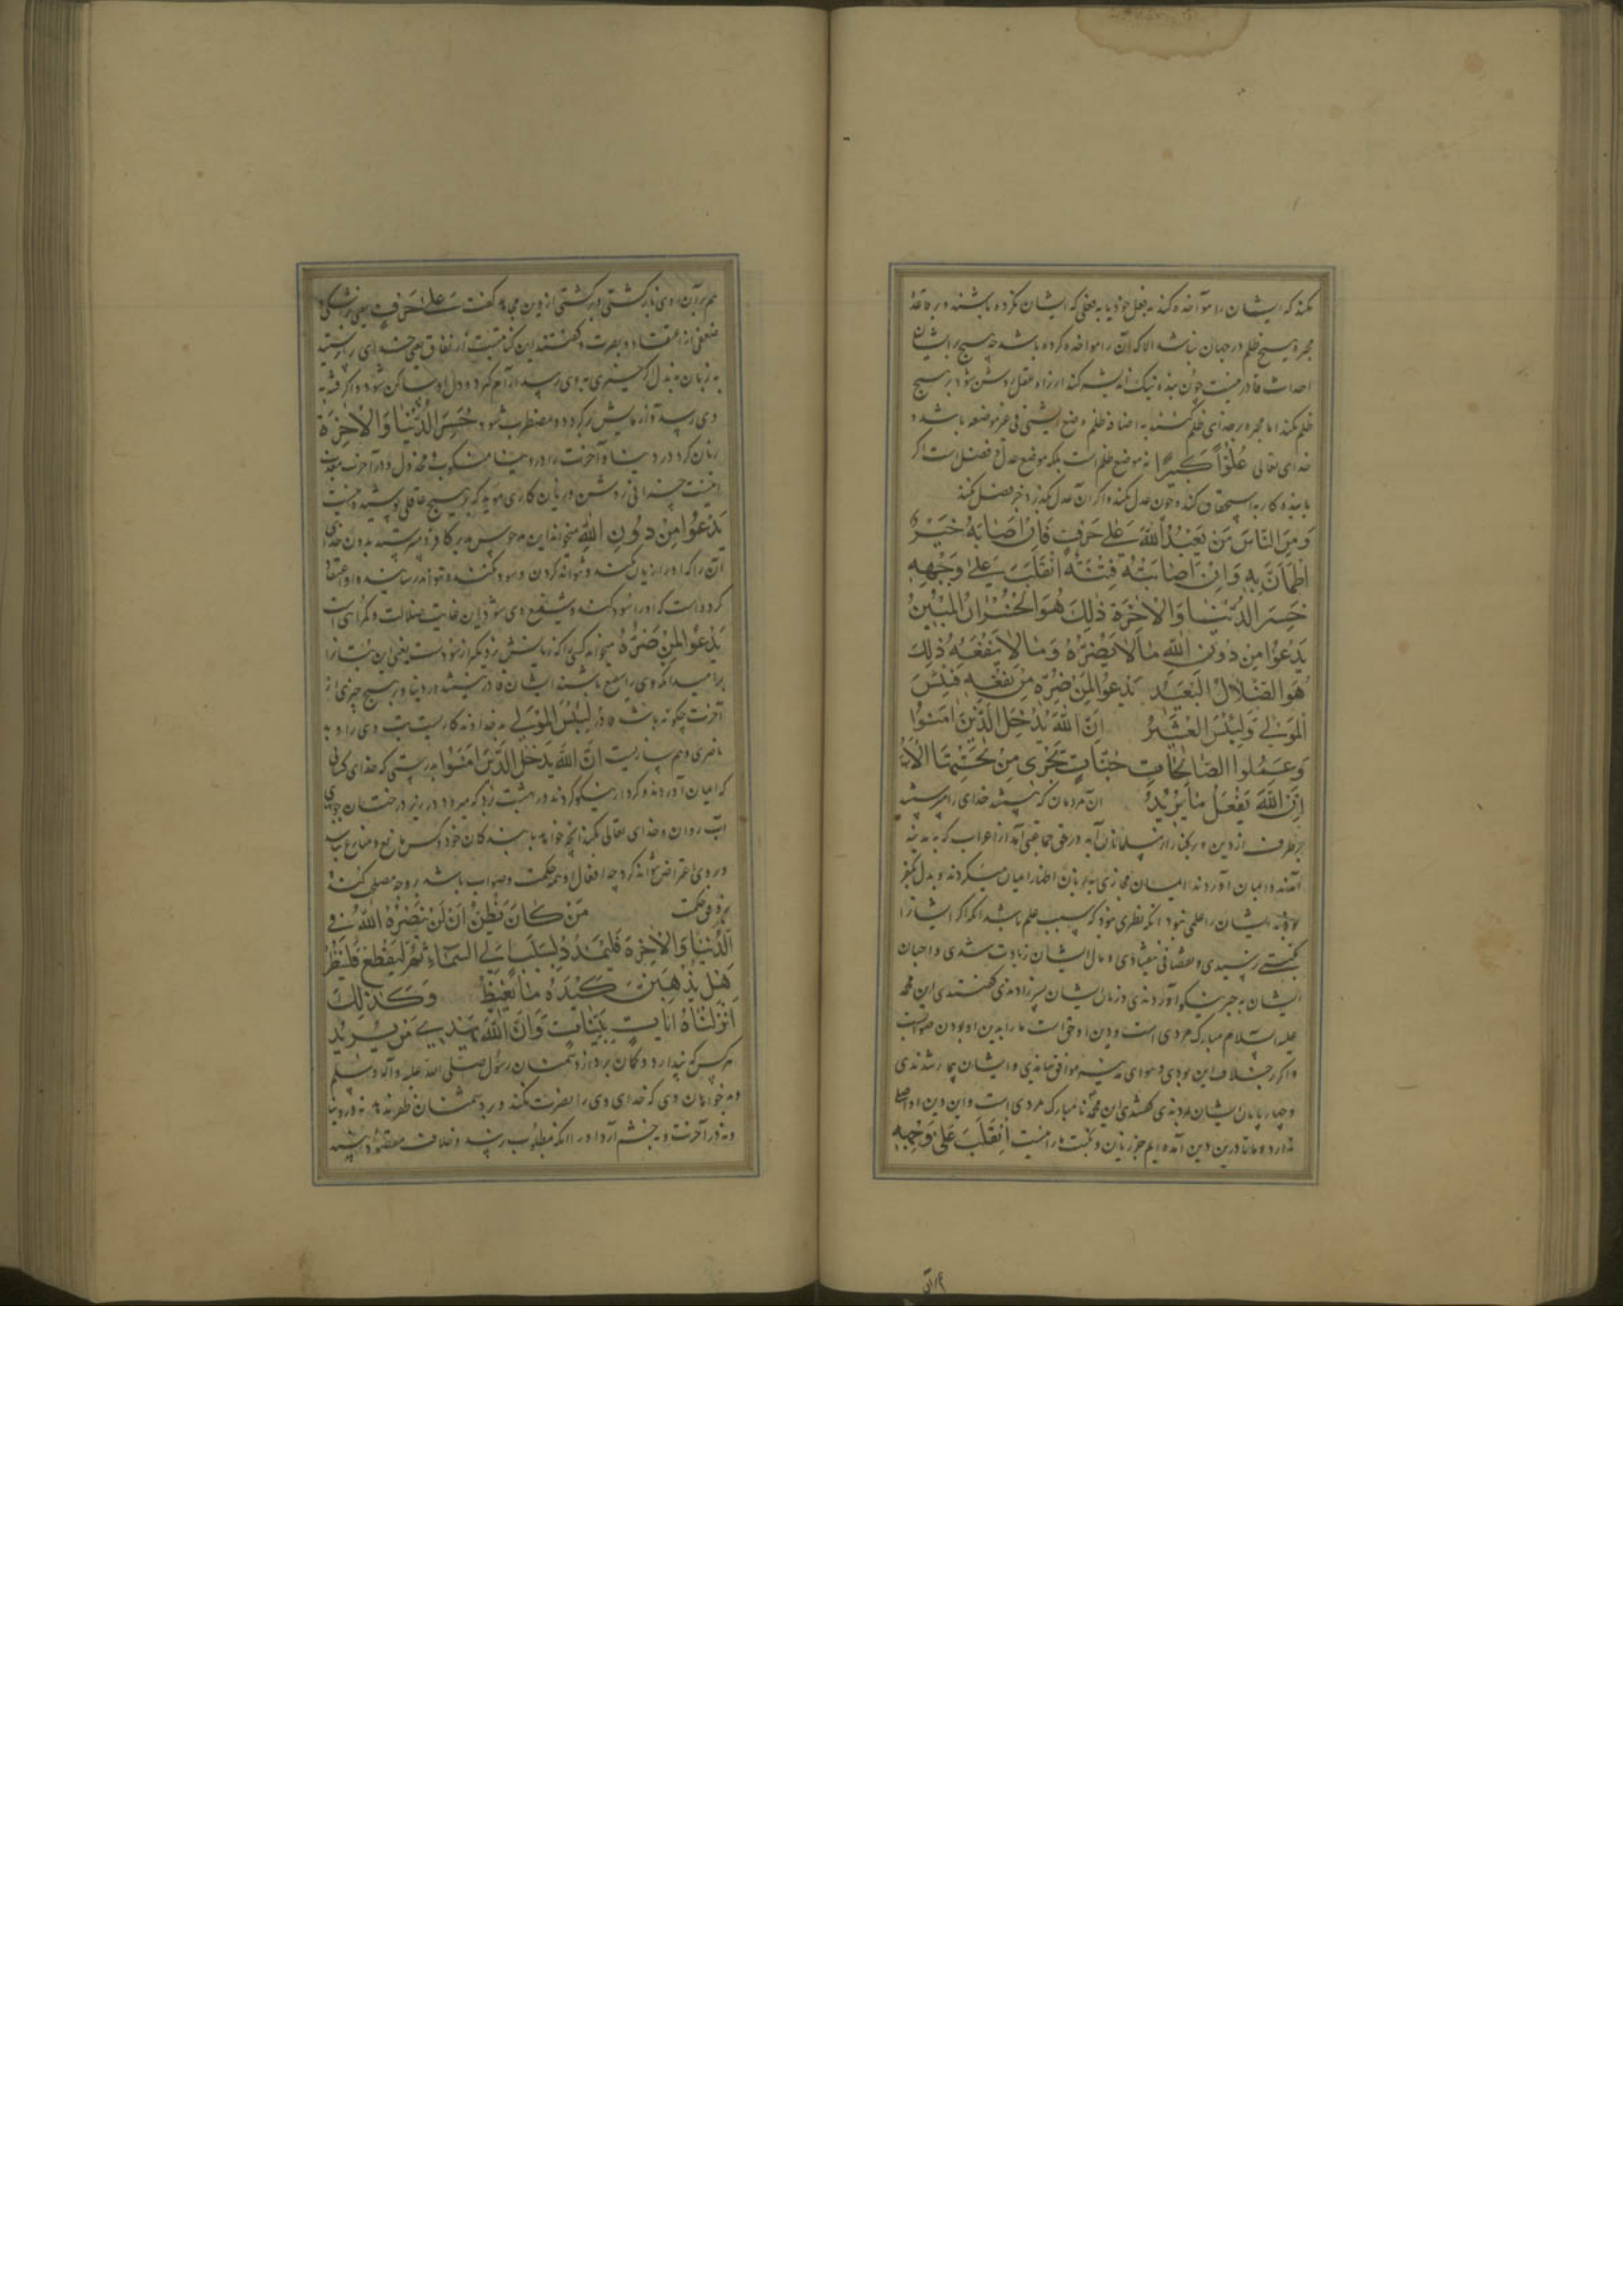 نکند که ایشان را مواخذه کند به فعل خود یا به فعلی که ایشان نکرده باشند و بر قاعدهٔ
مجبره هیچ ظلم در جهان نباشد الا که آن را مواخذه کرده باشد چه هیچ بر ایشان
احداث قادر نیست چون بنده نیک اندیشه کند از راه عقل روشن شود بر هیچ
ظلم نکند اما مجبره بر خدای ظلم گفتند به اضافه ظلم وضع الشیئ فی غیر موضعه باشد و
خدای تعالی عُلُوّاً كَبيرًا نه موضع ظلم است بلکه موضع عدل و فضل است اگر
با بنده کار به استحقاق کند و چون عدل نکند و اگر از عدل بگذرد جز فضل نکند
وَمِنَ النّاسِ مَنْ يَعْبُدُ اللّٰهَ عَلىٰ حَرْفٍ فَاِنْ اَصابَهُ خَيْرٌ
اطْمَاَنَّ بِهِ وَاِنْ اَصابَتْهُ فِتْنَةٌ انْقَلَبَ عَلىٰ وَجْهِهِ
خَسِرَ الدُّنْيا وَالْاٰخِرَةَ ذٰلِكَ هُوَ الْخُسْرانُ الْمُبينُ
يَدْعُوا مِنْ دُونِ اللّٰهِ مالا يَضُرُّهُ وَمالا يَنْفَعُهُ ذٰلِكَ
هُوَ الضَّلالُ الْبَعيدُ يَدْعُوا لَمَنْ ضَرُّهُ مِنْ نَفْعِهِ فَبِئْسَ
الْمَوْلى وَلَبِئْسَ الْعَشيرُ اِنَّ اللّٰهَ يُدْخِلُ الَّذينَ اٰمَنُوا
وَعَمِلُوا الصّالِحاتِ جَنّاتٍ تَجْرى مِنْ تَحْتِهَا الْاَنْهارُ
اِنَّ اللّٰهَ يَفْعَلُ ما يُريدُ از مردمان کس باشد خدای را می پرستید
بر طرف از دین و بر کنار از مسلمانان آیه در حق جماعتی آمد از اعراب که به مدینه
آمدند و ایمان آوردند ایمان مجازی به زبان اظهار ایمان میکردند و بدل کفر
ایشان را علمی نبود آنکه نظری نبود که سبب علم باشد آنکه اگر ایشان را
نعمتی رسیدی و مال ایشان زیادت شدی و اسبان
ایشان بچه نیکو آوردندی و زنان ایشان پسر زادندی گفتندی این محمد
علیه السلام مبارک مردی است و دین او حق است ما را بدین او بودن صوابست
و اگر خلاف این بودی و هوای مدینه موافق نیامدی و ایشان بیمار شدندی
و چهارپایان ایشان مردندی گفتندی این محمد نامبارک مردی است و این دین او اصلی
ندارد و ما تا درین دین آمده ایم جز زیان و نکبت ما را نیست اِنْقَلَبَ عَلىٰ وَجْهِهِ
هم بر آن روی بازگشتی و برگشتی از دین مجاهد گفت عَلىٰ حَرْفٍ یعنی بر شکی و
ضعفی از اعتقاد و بصیرت و گفتند این کنایتست از نفاق یعنی خدای را پرستید
به زبان نه بدل اگر خیری به وی رسید آرام گیرد و دل او ساکن شود و اگر فتنه
وی رسد و آزمایش برگردد و مضطرب شود خَسِرَ الدُّنْيا وَالْاٰخِرَةَ
زیان کرد در دنیا و آخرت را در دنیا منکوب و مخذول و در آخرت معذب
اینست خسرانی روشن و زیان کاری هویدا که بر هیچ عاقلی پوشیده نیست
يَدْعُوا مِنْ دُونِ اللّٰهِ میخواند این و می پرستید بدون خدای
آن را که او را زیان نکند و نتواند کردن و سود نکند و نتواند رسانید و او اعتقاد
کرده است که او را سود کند و شفیع وی شود این غایت ضلالت و گمراهی است
يَدْعُوا لَمَنْ ضَرُّهُ میخواند کسی را که زیانش نزدیکتر از سود است یعنی این بتان را
بر امید آنکه وی را شفیع باشند ایشان نه در دنیا و هیچ چیزی از
آخرت چگونه باشند لَبِئْسَ الْمَوْلى بد خداوند کاریست بت وی را و بد
ناصری و همسازیست اِنَّ اللّٰهَ يُدْخِلُ الَّذينَ اٰمَنُوا بدرستی که خدای کسانی
که ایمان آوردند و کردار نیکو کردند در بهشت برد که میرود در زیر درختان جوی
آب روان و خدای تعالی بکند آنچه خواهد با بندگان خود و کس مانع و منازع نباشد
در وی اعتراض نتواند کرد چه افعال او همه حکمت و صواب باشد بر وجه مصلحت کند
بر وفق حکمت مَنْ كانَ يَظُنُّ اَنْ لَنْ يَنْصُرَهُ اللّٰهُ فِي
الدُّنْيا وَالْاٰخِرَةِ فَلْيَمْدُدْ بِسَبَبٍ اِلَى السَّماءِ ثُمَّ لْيَقْطَعْ فَلْيَنْظُرْ
هَلْ يُذْهِبَنَّ كَيْدُهُ ما يَغيظُ وَكَذٰلِكَ
اَنْزَلْناهُ اٰياتٍ بَيِّناتٍ وَاَنَّ اللّٰهَ يَهْدي مَنْ يُريدُ
هر کس که پندارد و گمان برد از دشمنان رسول صلی الله علیه و آله و سلم
و بدخواهان وی که خدای وی را نصرت نکند و بر دشمنان ظفر ندهد نه در دنیا
و نه در آخرت و به خشم آرد او را آنکه مطلوب نرسید و خلاف مقصود